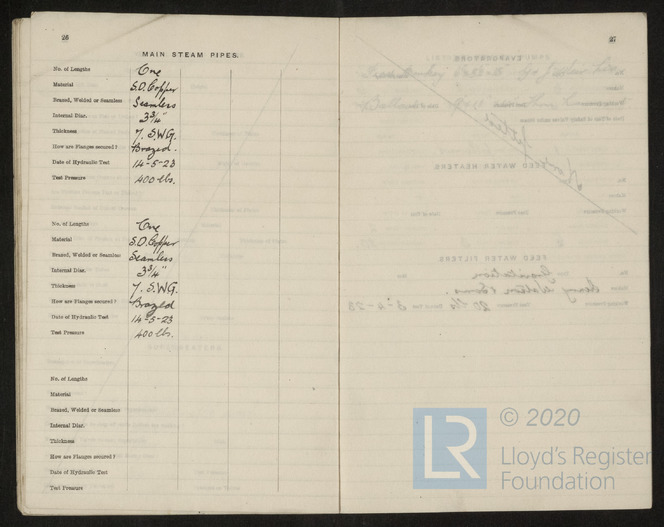 26
MAIN STEAM PIPES.
No. of Lengths One
Material S.D. Copper
Brazed, Welded or Seamless Seamless
Internal Diar. 3¾"
Thickness 7. S.W.G.
How are Flanges secured? Brazed.
Date of Hydraulic Test 14-5-23
Test Pressure 400 lbs.
No. of Lengths One
Material S.D. Copper
Brazed, Welded or Seamless Seamless
Internal Diar. 3¾"
Thickness 7. S.W.G.
How are Flanges secured? Brazed
Date of Hydraulic Test 14-5-23
Test Pressure 400 lbs.
No. of Lengths
Material
Brazed, Welded or Seamless
Internal Diar.
Thickness
How are Flanges secured?
Date of Hydraulic Test
Test Pressure
27
LR
© 2020
Lloyd's Register
Foundation